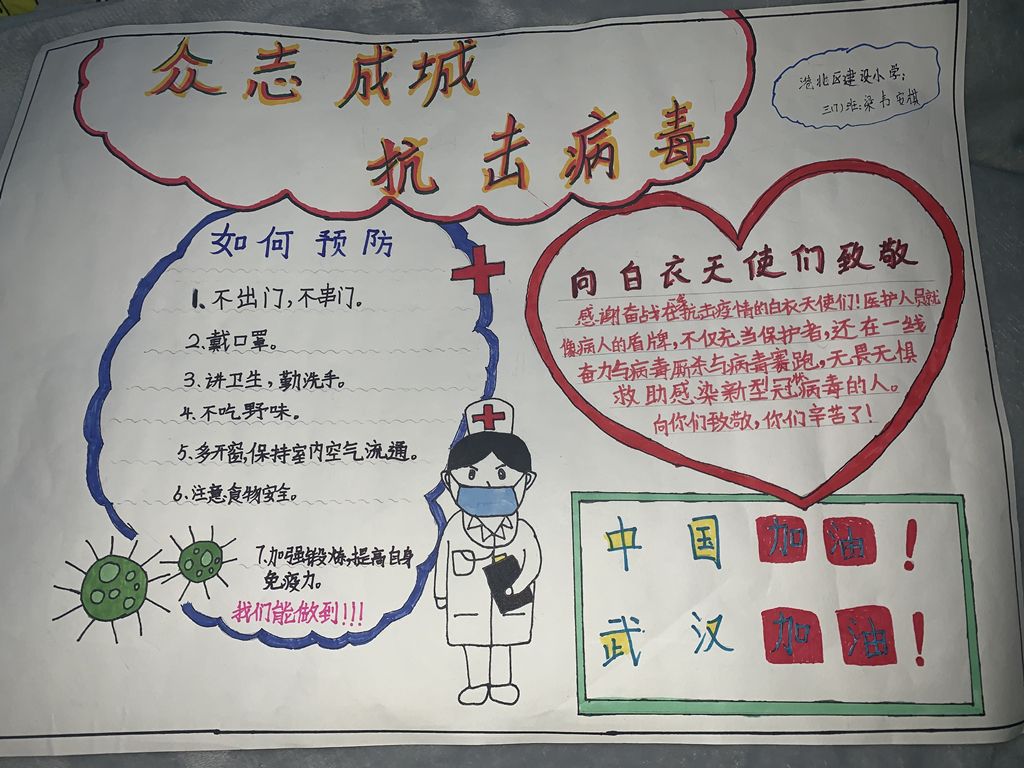 众志成城
抗击病毒
港北区建设小学:
三(7)班:梁
如何预防
1、不出门,不串门。
2、戴口罩。
3、讲卫生,勤洗手。
4、不吃野味。
5、多开窗,保持室内空气流通。
6、注意食物安全。
7、加强锻炼,提高自身
免疫力。
我们能做到!!!
向白衣天使们致敬
感谢奋战在抗击疫情的白衣天使们!医护人员就
像病人的盾牌,不仅充当保护者,还在一线
奋力与病毒厮杀与病毒赛跑,无畏无惧
救助感染新型冠状病毒的人。
向你们致敬,你们辛苦了!
中国加油!
武汉加油!